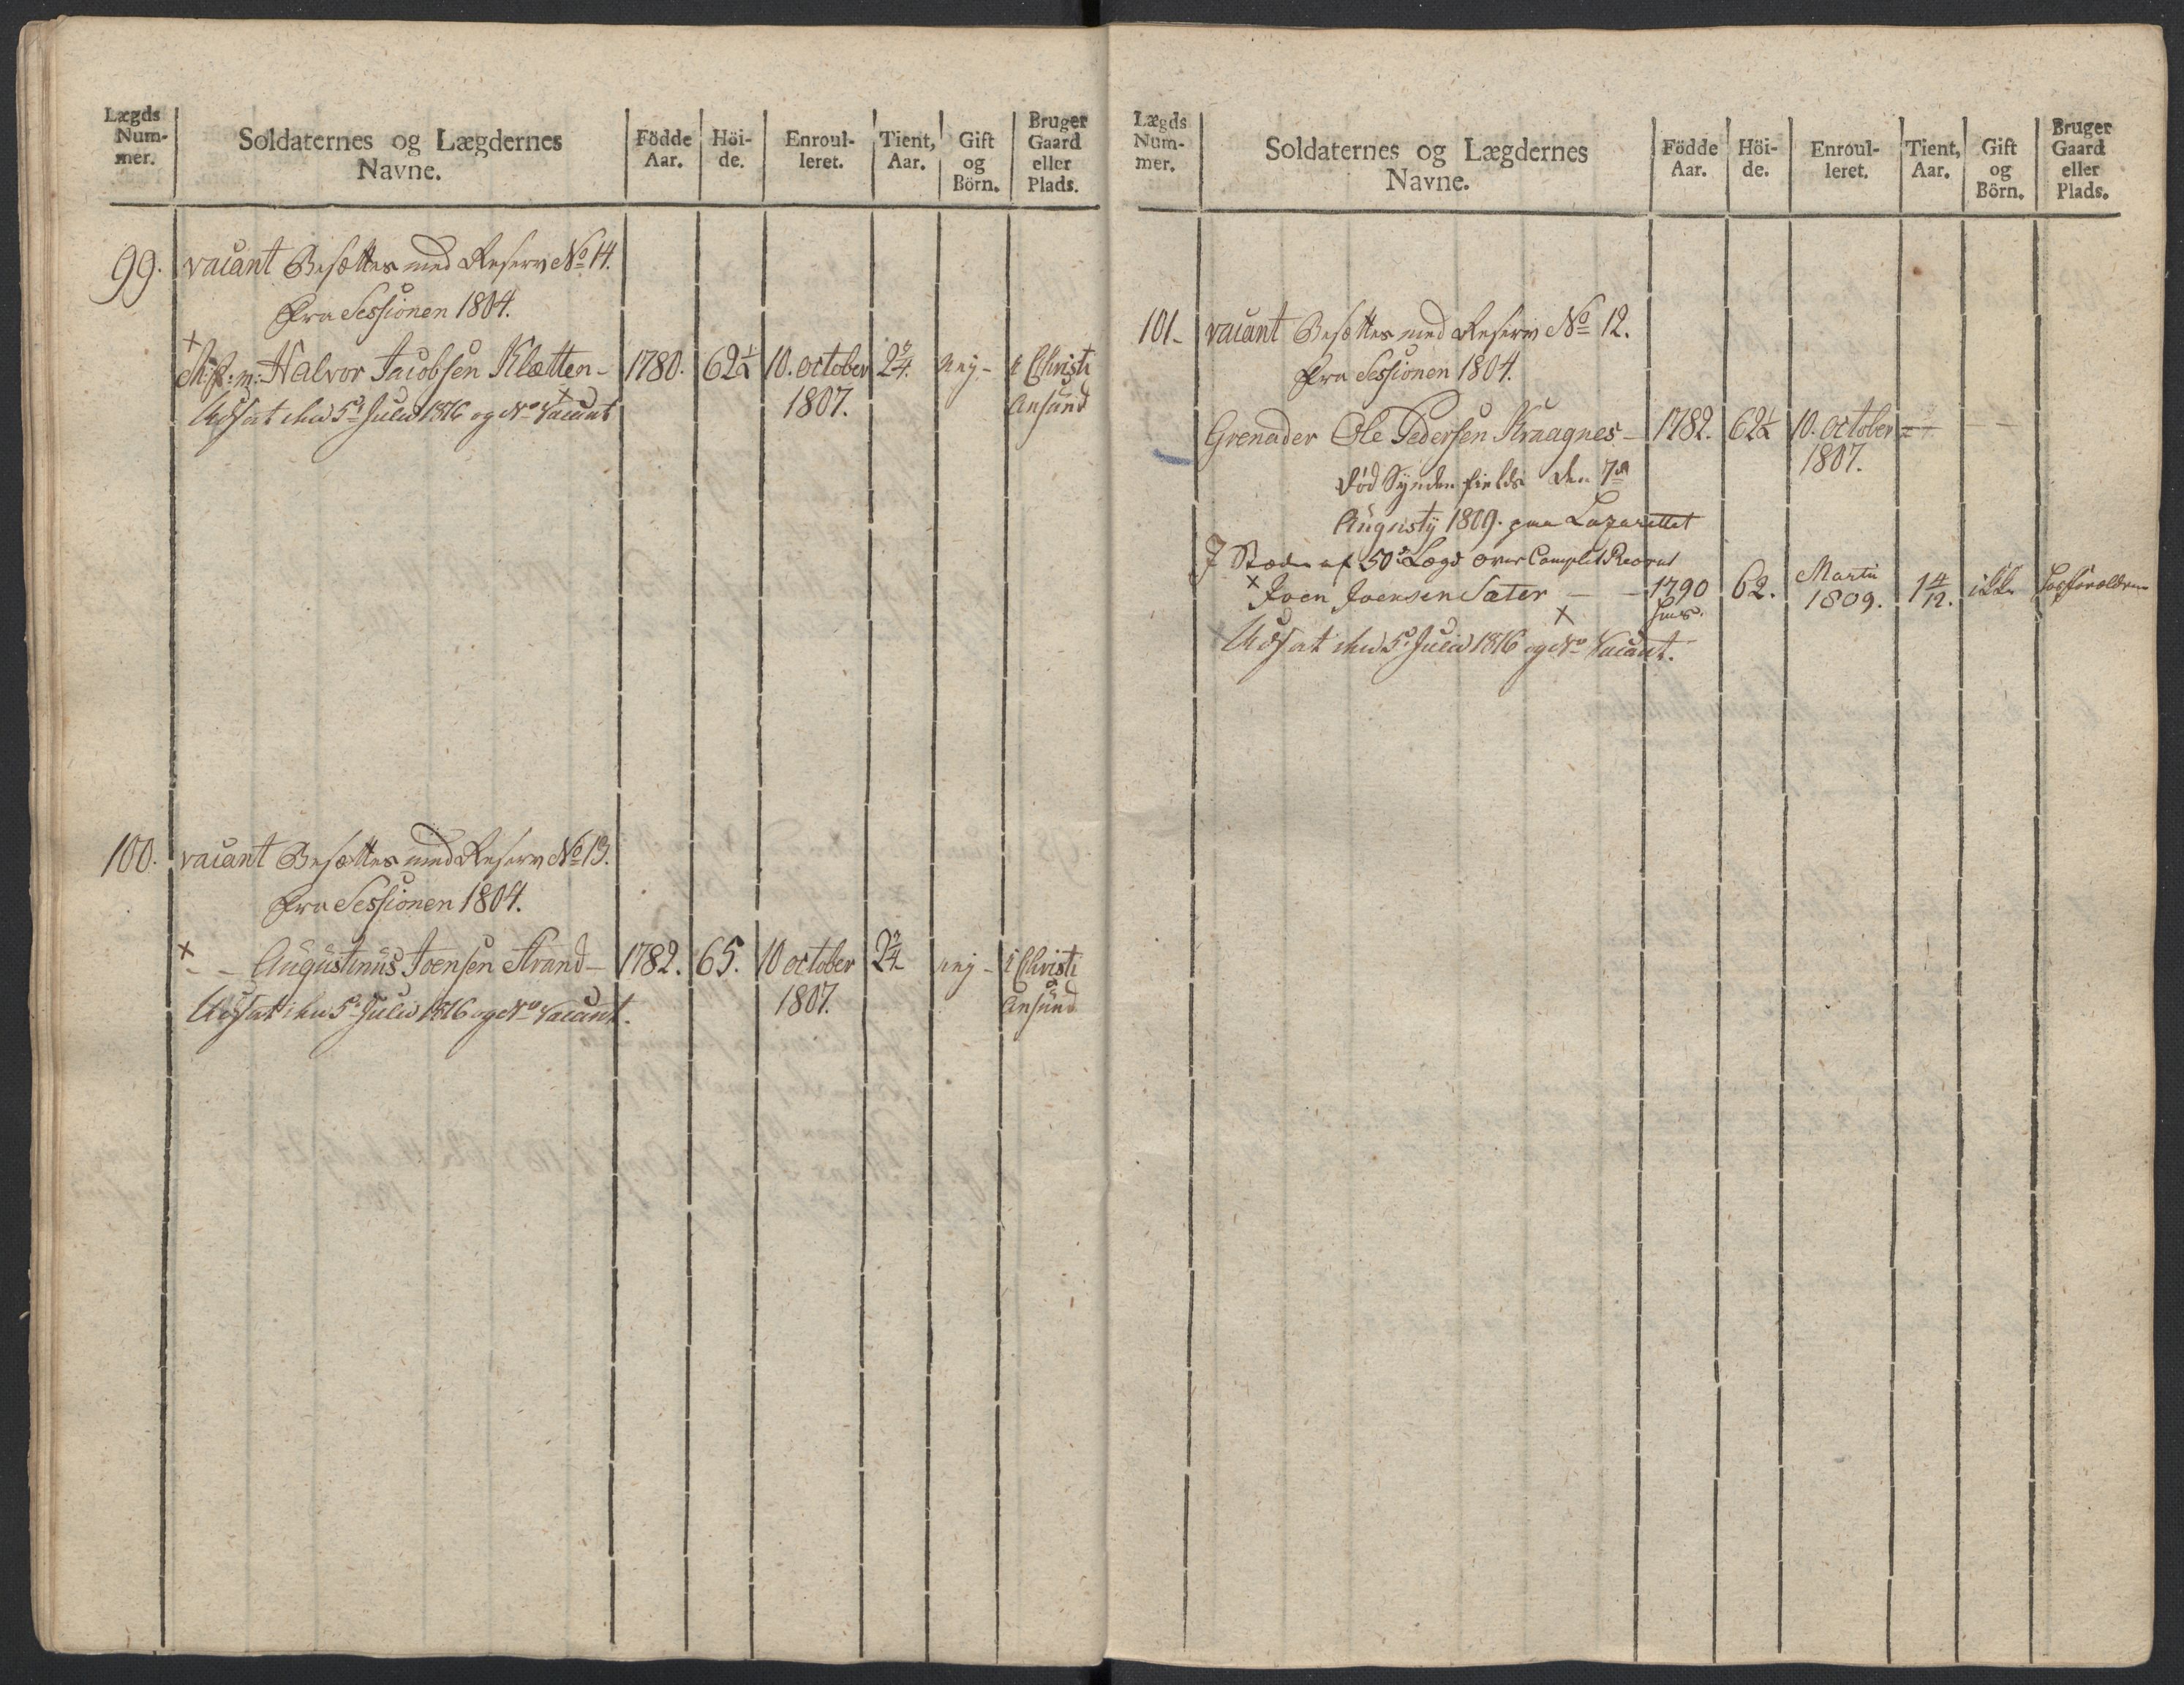 Lægds Nummer.
Soldaternes og Lægdernes Navne.
Födde Aar.
Höide.
Enroulleret.
Tient, Aar.
Gift og Börn.
Bruger Gaard eller Plads.
99. vacant Besættes med Reserv No 14.
fra Sessionen 1804.
Halvor Jacobsen Klætten - 1780. 62½ 10. october 2¾ nej - i Christi
Udsat den 5te Julii 1816 og No Vacant 1807. Ansund
100. vacant Besættes med Reserv No 13.
fra Sessionen 1804.
x - - Augustinus Joensen Strand - 1782. 65. 10 october 2¾ nej - i Christi
Udsat den 5te Julii 1816 og No Vacant. 1807. Ansund
Lægds Nummer.
Soldaternes og Lægdernes Navne.
Födde Aar.
Höide.
Enroulleret.
Tient, Aar.
Gift og Börn.
Bruger Gaard eller Plads.
101 - vacant Besættes med Reserv No 12.
fra Sessionen 1804.
Grenader Ole Pedersen Kraagnes - 1782. 62½ 10. october - -
1807.
død Synden fields den 7de
Augusty 1809. paa Lazarettet
I Stæden af 50de Lægd over Complet Recrut
x Joen Joensen Sæter - - 1790 62. Martii 1809. 1 4/12. ikke hos forældrene
Udsat den 5te Julii 1816 og No Vacant.